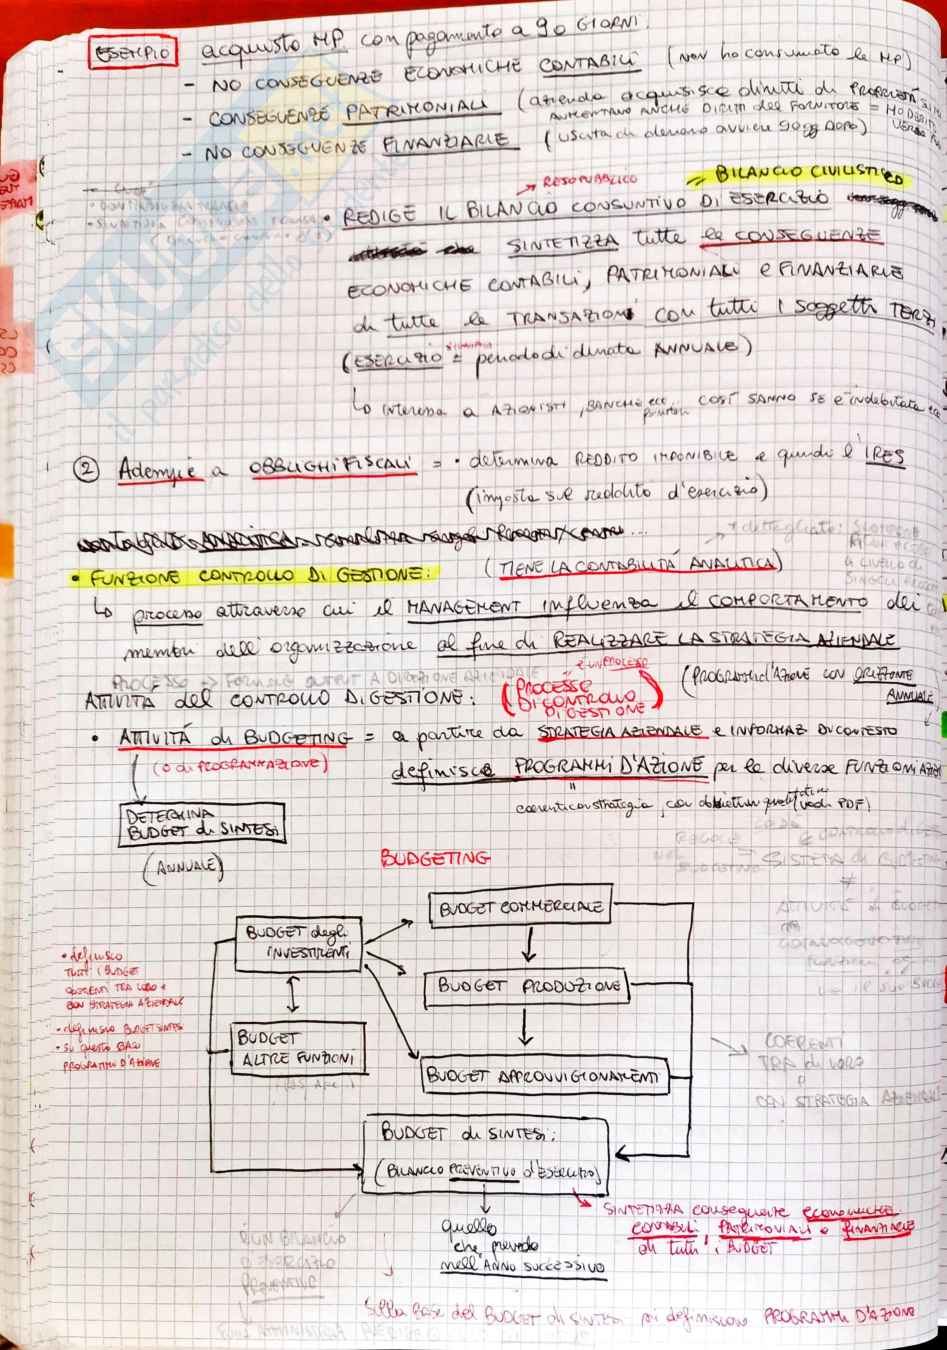 ESEMPIO acquisto MP con pagamento a 90 GIORNI.
- NO CONSEGUENZE ECONOMICHE CONTABILI (non ho consumato le MP)
- CONSEGUENZE PATRIMONIALI (azienda acquisisce diritti di PROPRIETÀ
AUMENTANO ANCHE DIRITTI del FORNITORE =
- NO CONSEGUENZE FINANZIARIE (uscita di denaro avviene 90gg DOPO)
= BILANCIO CIVILISTICO
RESO PUBBLICO
• REDIGE IL BILANCIO CONSUNTIVO DI ESERCIZIO
SINTETIZZA tutte le CONSEGUENZE
ECONOMICHE CONTABILI, PATRIMONIALI e FINANZIARIE
di tutte le TRANSAZIONI CON tutti I soggetti TERZI
(ESERCIZIO = periodo di durata ANNUALE)
↳ interessa a AZIONISTI, BANCHE ecc COSÌ SANNO SE è indebitata ecc
② Adempie a OBBLIGHI FISCALI = • determina REDDITO IMPONIBILE e quindi l'IRES
(imposta sul reddito d'esercizio)
• FUNZIONE CONTROLLO DI GESTIONE: (TIENE LA CONTABILITÀ ANALITICA)
↳ processo attraverso cui il MANAGEMENT influenza il COMPORTAMENTO dei
membri dell'organizzazione al fine di REALIZZARE LA STRATEGIA AZIENDALE
ATTIVITÀ del CONTROLLO DI GESTIONE: (PROCESSO DI CONTROLLO DI GESTIONE)
(PROGRAMMI d'AZIONE CON ORIZZONTE
ANNUALE)
• ATTIVITÀ di BUDGETING = a partire da STRATEGIA AZIENDALE e INFORMAZ DI CONTESTO
(o di PROGRAMMAZIONE)
definisce PROGRAMMI D'AZIONE per le diverse FUNZIONI
coerenti con strategia con obiettivi quantitativi (vedi PDF)
DETERMINA
BUDGET di SINTESI
(ANNUALE)
BUDGETING
BUDGET COMMERCIALE
BUDGET degli
INVESTIMENTI
BUDGET PRODUZIONE
BUDGET
ALTRE FUNZIONI
BUDGET APPROVVIGIONAMENTI
• definisco
TUTTI i BUDGET
COERENTI TRA LORO e
CON STRATEGIA AZIENDALE
• definisco BUDGET SINTESI
• su questa BASE
PROGRAMMI D'AZIONE
COERENTI
TRA di LORO
e
CON STRATEGIA AZIENDALE
BUDGET di SINTESI:
(BILANCIO PREVENTIVO d'ESERCIZIO)
SINTETIZZA conseguenze economiche
CONTABILI, PATRIMONIALI e FINANZIARIE
di tutti i BUDGET
quello
che prevedo
nell'ANNO SUCCESSIVO
Sulla base del BUDGET di SINTESI poi definiscono PROGRAMMI D'AZIONE